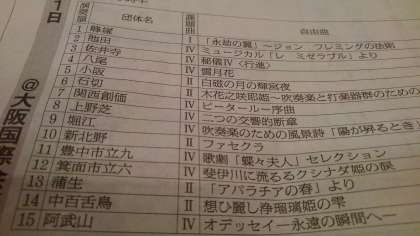 1日
@大阪国際会
演奏順 団体名 課題曲 自由曲
1 塚 I 「永劫の翼」〜ジョン フレミングの法則
2 池田 IV ミュージカル「レ ミゼラブル」より
3 佐井寺 IV 秘儀Ⅳ〈行進〉
4 八尾 IV 雪月花
5 小阪 白磁の月の輝宮夜
6 石切 II 木花之咲耶姫〜吹奏楽と打楽器群のための
7 関西創価 IV ピータールー序曲
8 上野芝 IV 二つの交響的断章
9 堀江 IV 吹奏楽のための風景詩「陽が昇るとき」
10 新北野 II ファセクラ
11 豊中市立九 IV 歌劇「蝶々夫人」セレクション
12 箕面市立六 IV 斐伊川に流るるクシナダ姫の涙
13 蒲生 II 「アパラチアの春」より
14 中百舌鳥 II 想ひ麗し浄瑠璃姫の雫
15 阿武山 IV オデッセイー永遠の瞬間へー